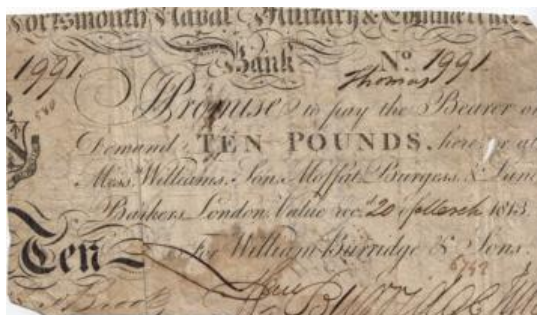 Portsmouth Naval Military & Commercial
Bank
1991. No. 1991.
Thomas
I Promise to pay the Bearer on
Demand TEN POUNDS, here or at
Mess. Williams, Son, Moffat, Burgess, & Lane
Bankers London, Value rec.d 20 of March 1813.
Ten For William Burridge & Sons.
6752